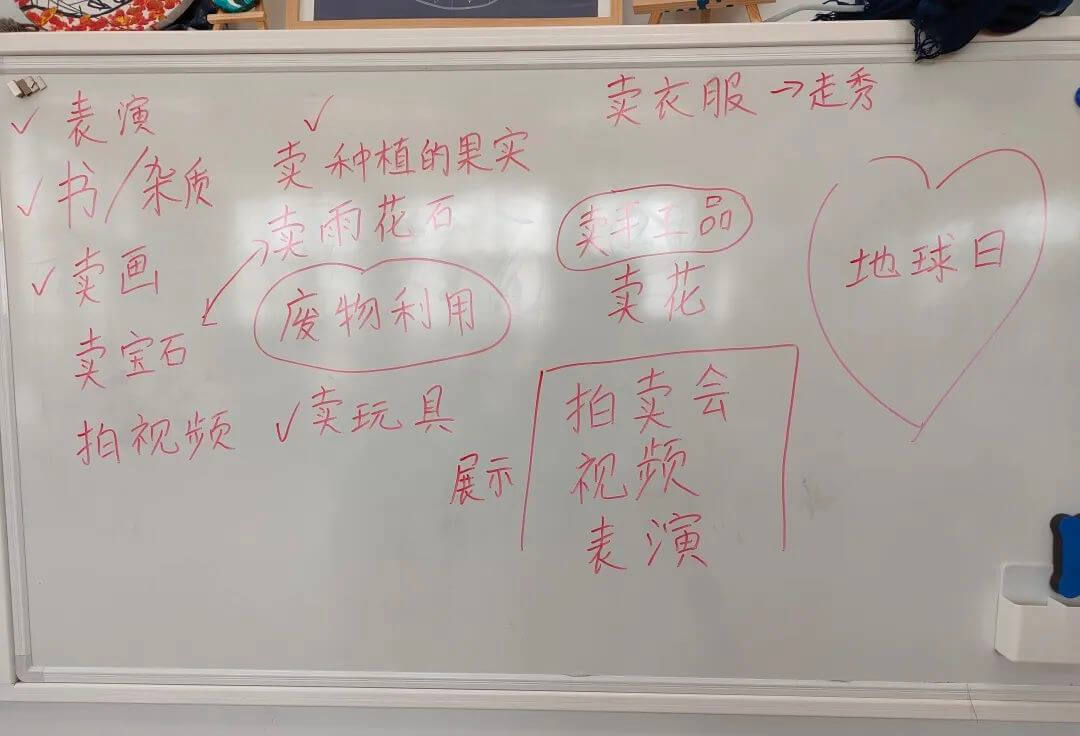 ✓ 表演
✓ 书/杂质
✓ 卖画
卖宝石
拍视频
✓
卖种植的果实
卖雨花石
废物利用
✓ 卖玩具
卖衣服 →走秀
卖手工品
卖花
展示
拍卖会
视频
表演
地球日